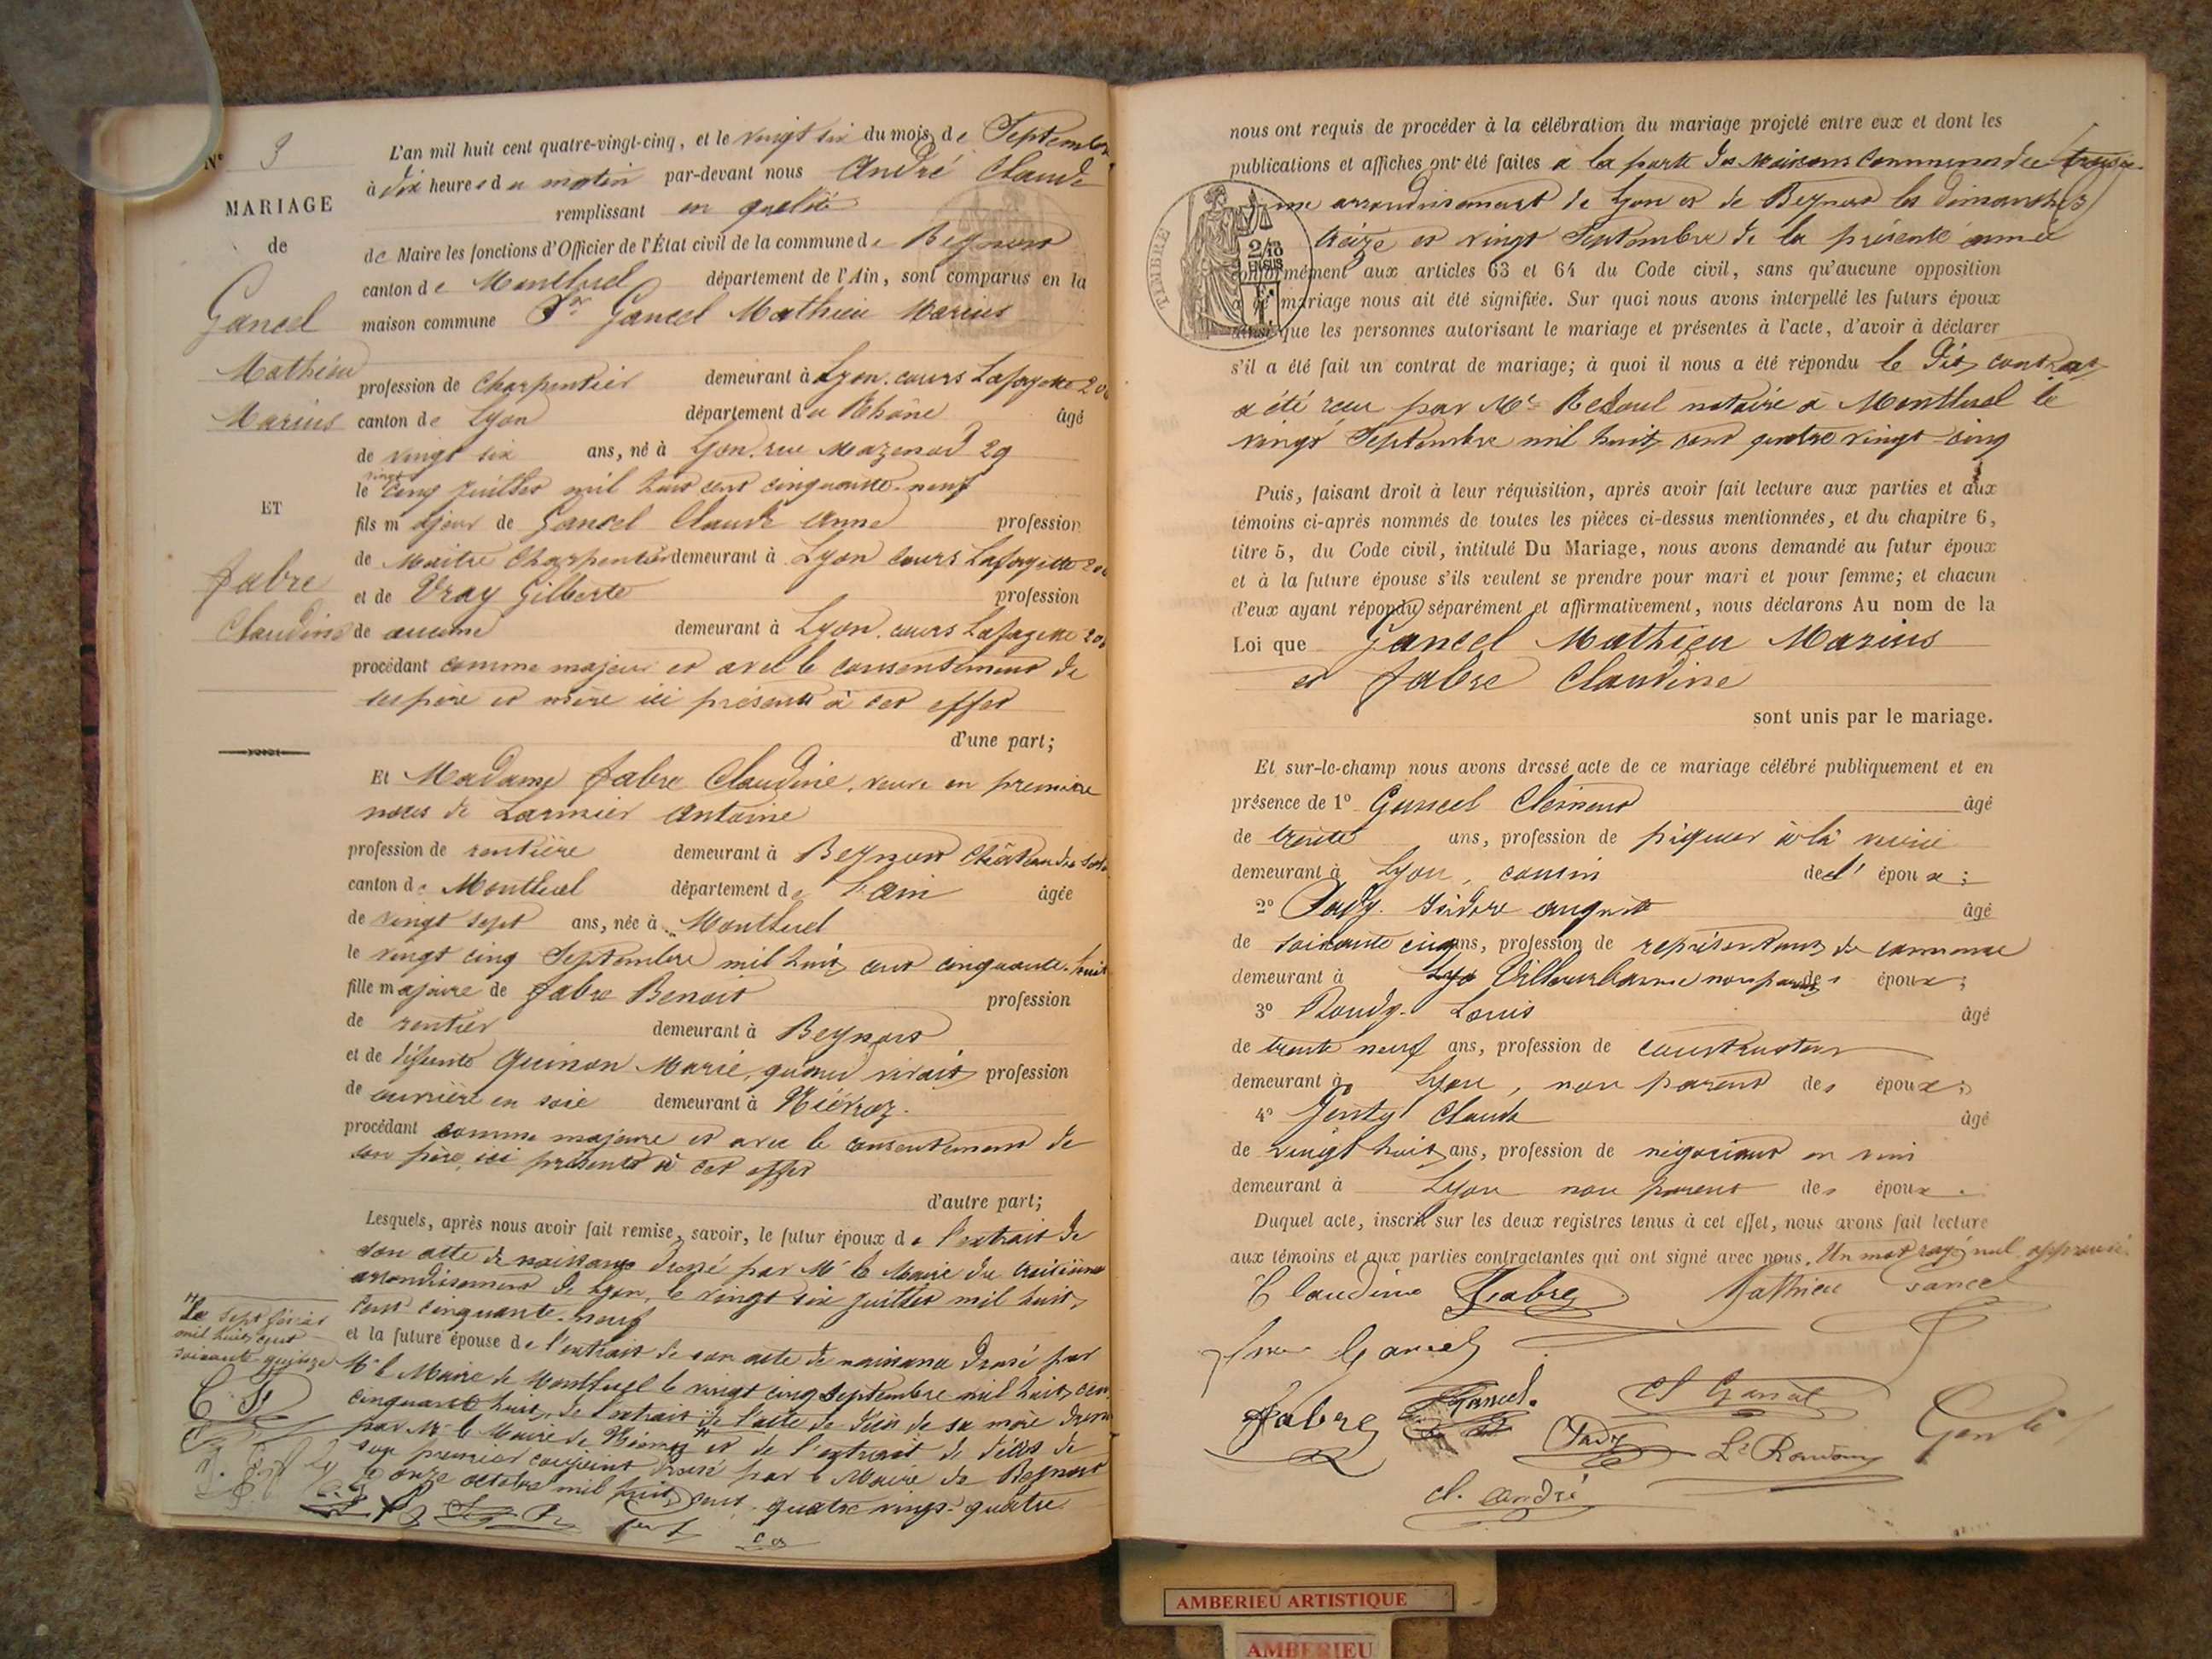 N° 3
MARIAGE
de
Gancel
Mathieu
Marius
ET
Fabre
Claudine
L'an mil huit cent quatre-vingt-cinq, et le vingt six du mois de Septembre
à dix heures du matin par-devant nous André Claude
remplissant en qualité
de Maire les fonctions d'Officier de l'État civil de la commune de Beynost
canton de Montluel département de l'Ain, sont comparus en la
maison commune Sr Gancel Mathieu Marius
profession de Charpentier demeurant à Lyon, cours Lafayette
canton de Lyon département du Rhône âgé
de vingt six ans, né à Lyon, rue Mazenod 29
le vingt cinq Juillet mil huit cent cinquante-neuf
fils majeur de Gancel Claude Anne profession
de Maître Charpentier demeurant à Lyon cours Lafayette
et de Vray Gilberte profession
de aucune demeurant à Lyon, cours Lafayette
procédant comme majeur et avec le consentement de
ses père et mère ici présents à cet effet
d'une part;
Et Madame Fabre Claudine, veuve en première
noces de Larmier Antoine
profession de rentière demeurant à Beynost Château des
canton de Montluel département de l'ain âgée
de vingt sept ans, née à Montluel
le vingt cinq Septembre mil huit cent cinquante-huit
fille majeure de Fabre Benoit profession
de rentier demeurant à Beynost
et de défunte Guinon Marie, quand vivait profession
de ouvrière en soie demeurant à Niévroz.
procédant comme majeure et avec le consentement de
son père, ici présent à cet effet
d'autre part;
Lesquels, après nous avoir fait remise, savoir, le futur époux de l'extrait de
son acte de naissance dressé par Mr le Maire du troisième
arrondissement de Lyon, le vingt six Juillet mil huit
cent cinquante-neuf
et la future épouse de l'extrait de son acte de naissance dressé par
Mr le Maire de Montluel le vingt cinq Septembre mil huit cent
cinquante huit, de l'extrait de l'acte de décès de sa mère dressé
par Mr le Maire de Niévroz et de l'extrait de décès de
son premier conjoint dressé par le Maire de Beynost
le onze octobre mil huit cent quatre vingt-quatre
Le sept février
mil huit cent
soixante-quinze
C. F.
nous ont requis de procéder à la célébration du mariage projeté entre eux et dont les
publications et affiches ont été faites à la porte des Maisons Communes du troisiè-
me arrondissement de Lyon et de Beynost les dimanches
treize et vingt Septembre de la présente année
TIMBRE
2/10 EN SUS
conformément aux articles 63 et 64 du Code civil, sans qu'aucune opposition
à ce mariage nous ait été signifiée. Sur quoi nous avons interpellé les futurs époux
ainsi que les personnes autorisant le mariage et présentes à l'acte, d'avoir à déclarer
s'il a été fait un contrat de mariage; à quoi il nous a été répondu le dit contrat
a été reçu par Me notaire à Montluel le
vingt Septembre mil huit cent quatre vingt-cinq
Puis, faisant droit à leur réquisition, après avoir fait lecture aux parties et aux
témoins ci-après nommés de toutes les pièces ci-dessus mentionnées, et du chapitre 6,
titre 5, du Code civil, intitulé Du Mariage, nous avons demandé au futur époux
et à la future épouse s'ils veulent se prendre pour mari et pour femme; et chacun
d'eux ayant répondu séparément et affirmativement, nous déclarons Au nom de la
Loi que Gancel Mathieu Marius
et Fabre Claudine
sont unis par le mariage.
Et sur-le-champ nous avons dressé acte de ce mariage célébré publiquement et en
présence de 1° Gancel Clément âgé
de trente ans, profession de piqueur à la voirie
demeurant à Lyon, cousin de l'époux;
2° Isidore auguste âgé
de soixante cinq ans, profession de représentant de commerce
demeurant à Lyo Villeurbanne non parent des époux;
3° Louis âgé
de trente neuf ans, profession de constructeur
demeurant à Lyon, non parent des époux;
4° Genty Claude âgé
de vingt huit ans, profession de négociant en vins
demeurant à Lyon non parent des époux.
Duquel acte, inscrit sur les deux registres tenus à cet effet, nous avons fait lecture
aux témoins et aux parties contractantes qui ont signé avec nous. Un mot rayé nul approuvé.
Claudine Fabre Mathieu Gancel
Gancel
Fabre Gancel. Cl Gancel
Genty
cl. André
AMBERIEU ARTISTIQUE
AMBERIEU